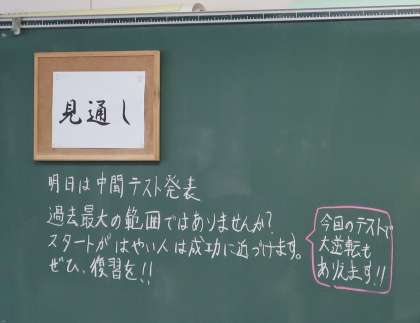 見通し
明日は中間テスト発表
過去最大の範囲ではありませんか?
スタートがはやい人は成功に近づけます。
ぜひ、復習を!!
今回のテストで
大逆転も
ありえます!!